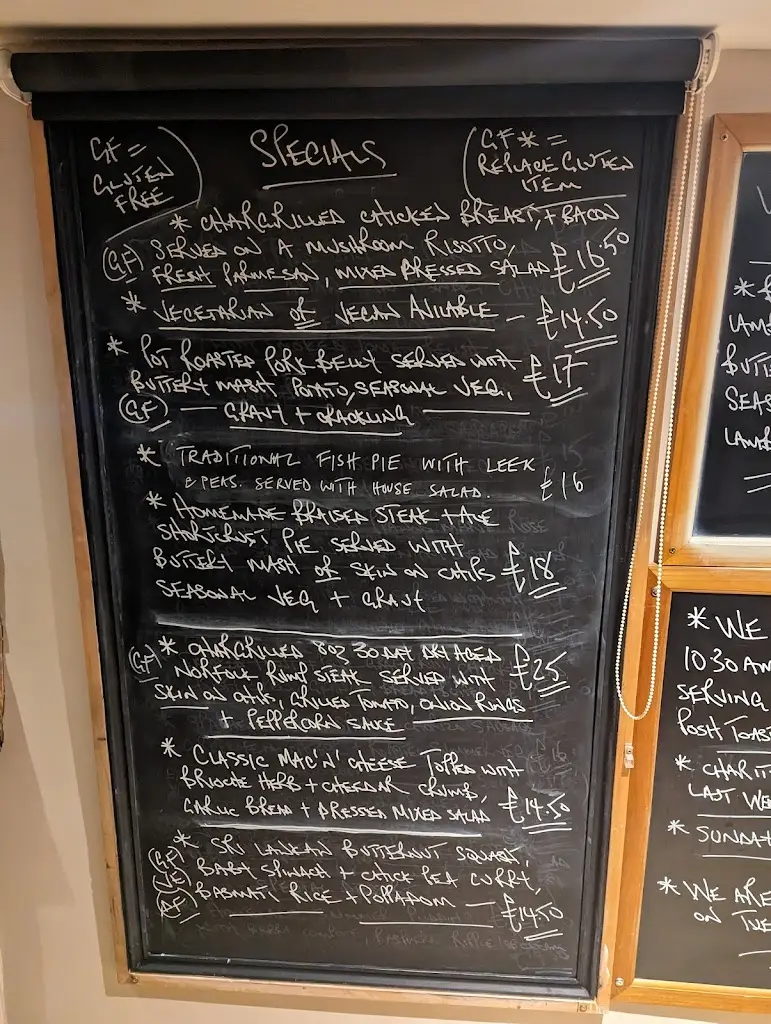 GF =
GLUTEN
FREE
SPECIALS
GF* =
REPLACE GLUTEN
ITEM
* CHARGRILLED CHICKED BREAST, + BACON
(GF) SERVED ON A MUSHROOM RISOTTO,
FRESH PARMESAN, MIXED DRESSED SALAD £16.50
* VEGETARIAN OF VEGAN AVILABLE — £14.50
* POT ROASTED PORK-BELLY SERVED WITH
BUTTERY MASH POTATO, SEASONAL VEG, £17
(GF) — GRAVY + CRACKLING —
* TRADITIONAL FISH PIE WITH LEEK
& PEAS. SERVED WITH HOUSE SALAD. £16
* HOMEMADE BRAISED STEAK + ALE
SHORTCRUST PIE SERVED WITH
BUTTERY MASH OF SKIN ON CHIPS £18
SEASONAL VEG + GRAVY
(GF) * CHARGRILLED 8OZ 30 DAY DRY AGED
NORFOLK RUMP STEAK SERVED WITH £25
SKIN ON CHIPS, GRILLED TOMATO, ONION RINGS
+ PEPPERCORN SAUCE
* CLASSIC MAC'N'CHEESE TOPPED WITH
BRIOCHE HERB + CHEDDAR CRUMB,
GARLIC BREAD + DRESSED MIXED SALAD £14.50
(GF) * SRI LANKAN BUTTERNUT SQUASH,
(VE) BABY SPINACH + CHICK PEA CURRY,
BASMATI RICE + POPPADOM — £14.50
LAMB
BUTTE
SEAS
LAMB
* WE
10 30 AM
SERVING
POSH TOAST
* CHARIT
LAST WE
* SUNDAY
* WE ARE
ON TUE